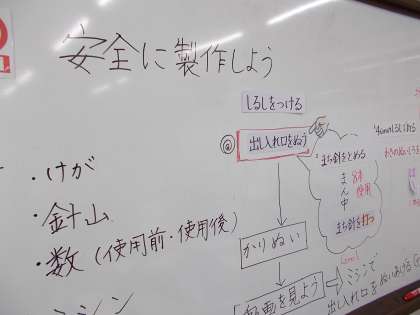 安全に製作しよう
・けが
・針山
・数(使用前・使用後)
ミシン
しるしをつける
@
出し入れ口をぬう
かりぬい
動画を見よう
まち針をとめる
まん中
8本
使用
まち針を打つ
1cm
ミシンで
出し入れ口を